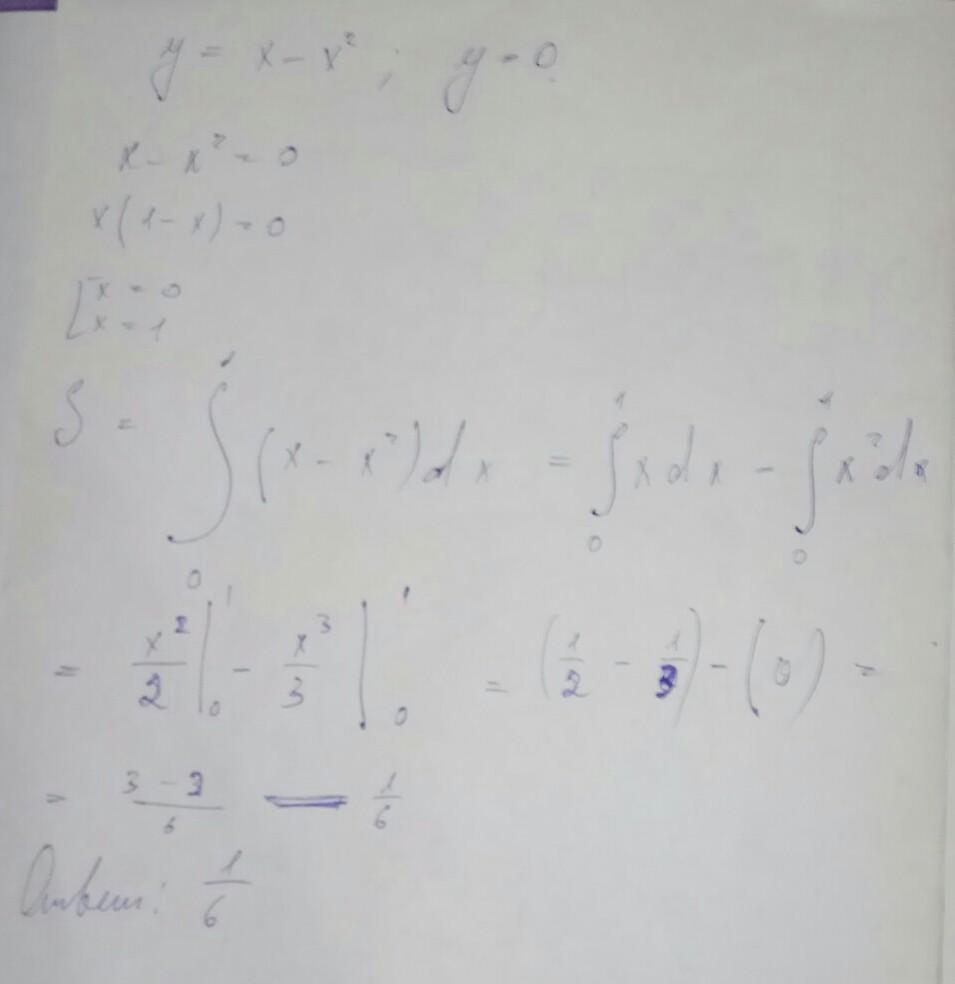 y = x - x² ; y = 0
x - x² = 0
x(1 - x) = 0
[x = 0
[x = 1
S = ∫₀¹ (x - x²)dx = ∫₀¹ x dx - ∫₀¹ x² dx
= x²/2 |₀¹ - x³/3 |₀¹ = (1/2 - 1/3) - (0) =
= (3 - 2)/6 = 1/6
Ответ: 1/6